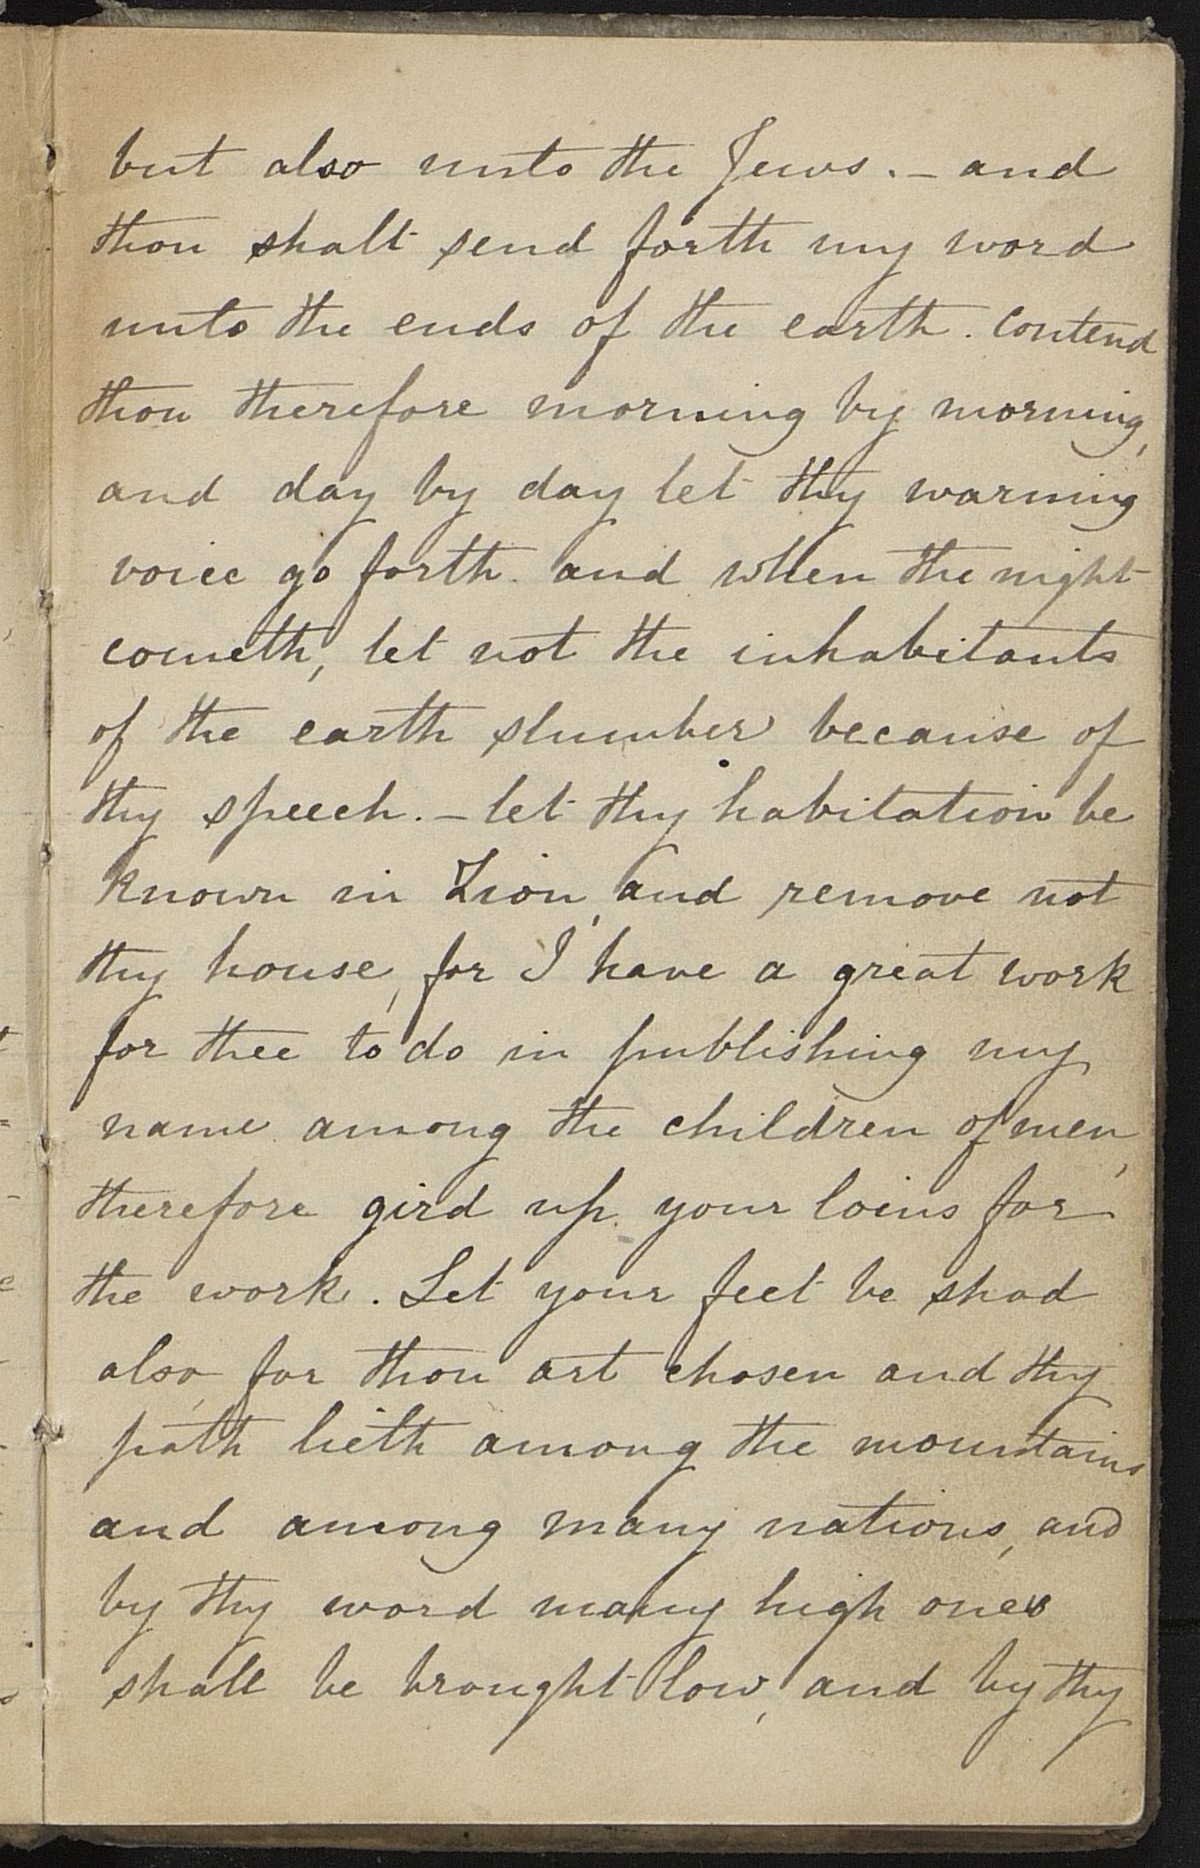 but also unto the Jews. – and
thou shalt send forth my word
unto the ends of the earth. contend
thou therefore morning by morning,
and day by day let thy warning
voice go forth. and when the night
cometh, let not the inhabitants
of the earth slumber because of
thy speech. – let thy habitation be
known in Zion, and remove not
thy house, for I have a great work
for thee to do in publishing my
name among the children of men,
therefore gird up your loins for
the work. Let your feet be shod
also, for thou art chosen and thy
path lieth among the mountains
and among many nations, and
by thy word many high ones
shall be brought low, and by thy